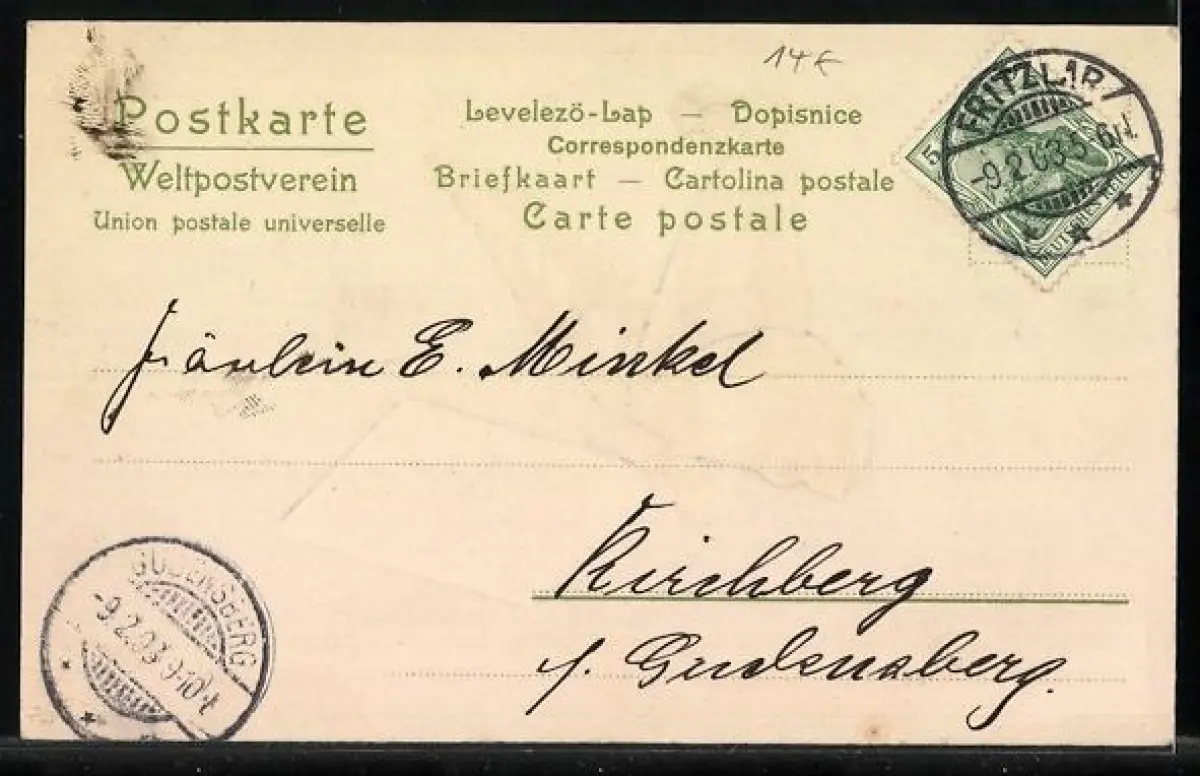 14 €
Postkarte
Weltpostverein
Union postale universelle
Levelező-Lap — Dopisnice
Correspondenzkarte
Briefkaart — Cartolina postale
Carte postale
FRITZLAR
-9.2.03 5-6N.
5
DEUTSCHES REICH
Fräulein E. Minkel
Kirchberg
b. Gudensberg.
GUDENSBERG
-9.2.03 9-10V